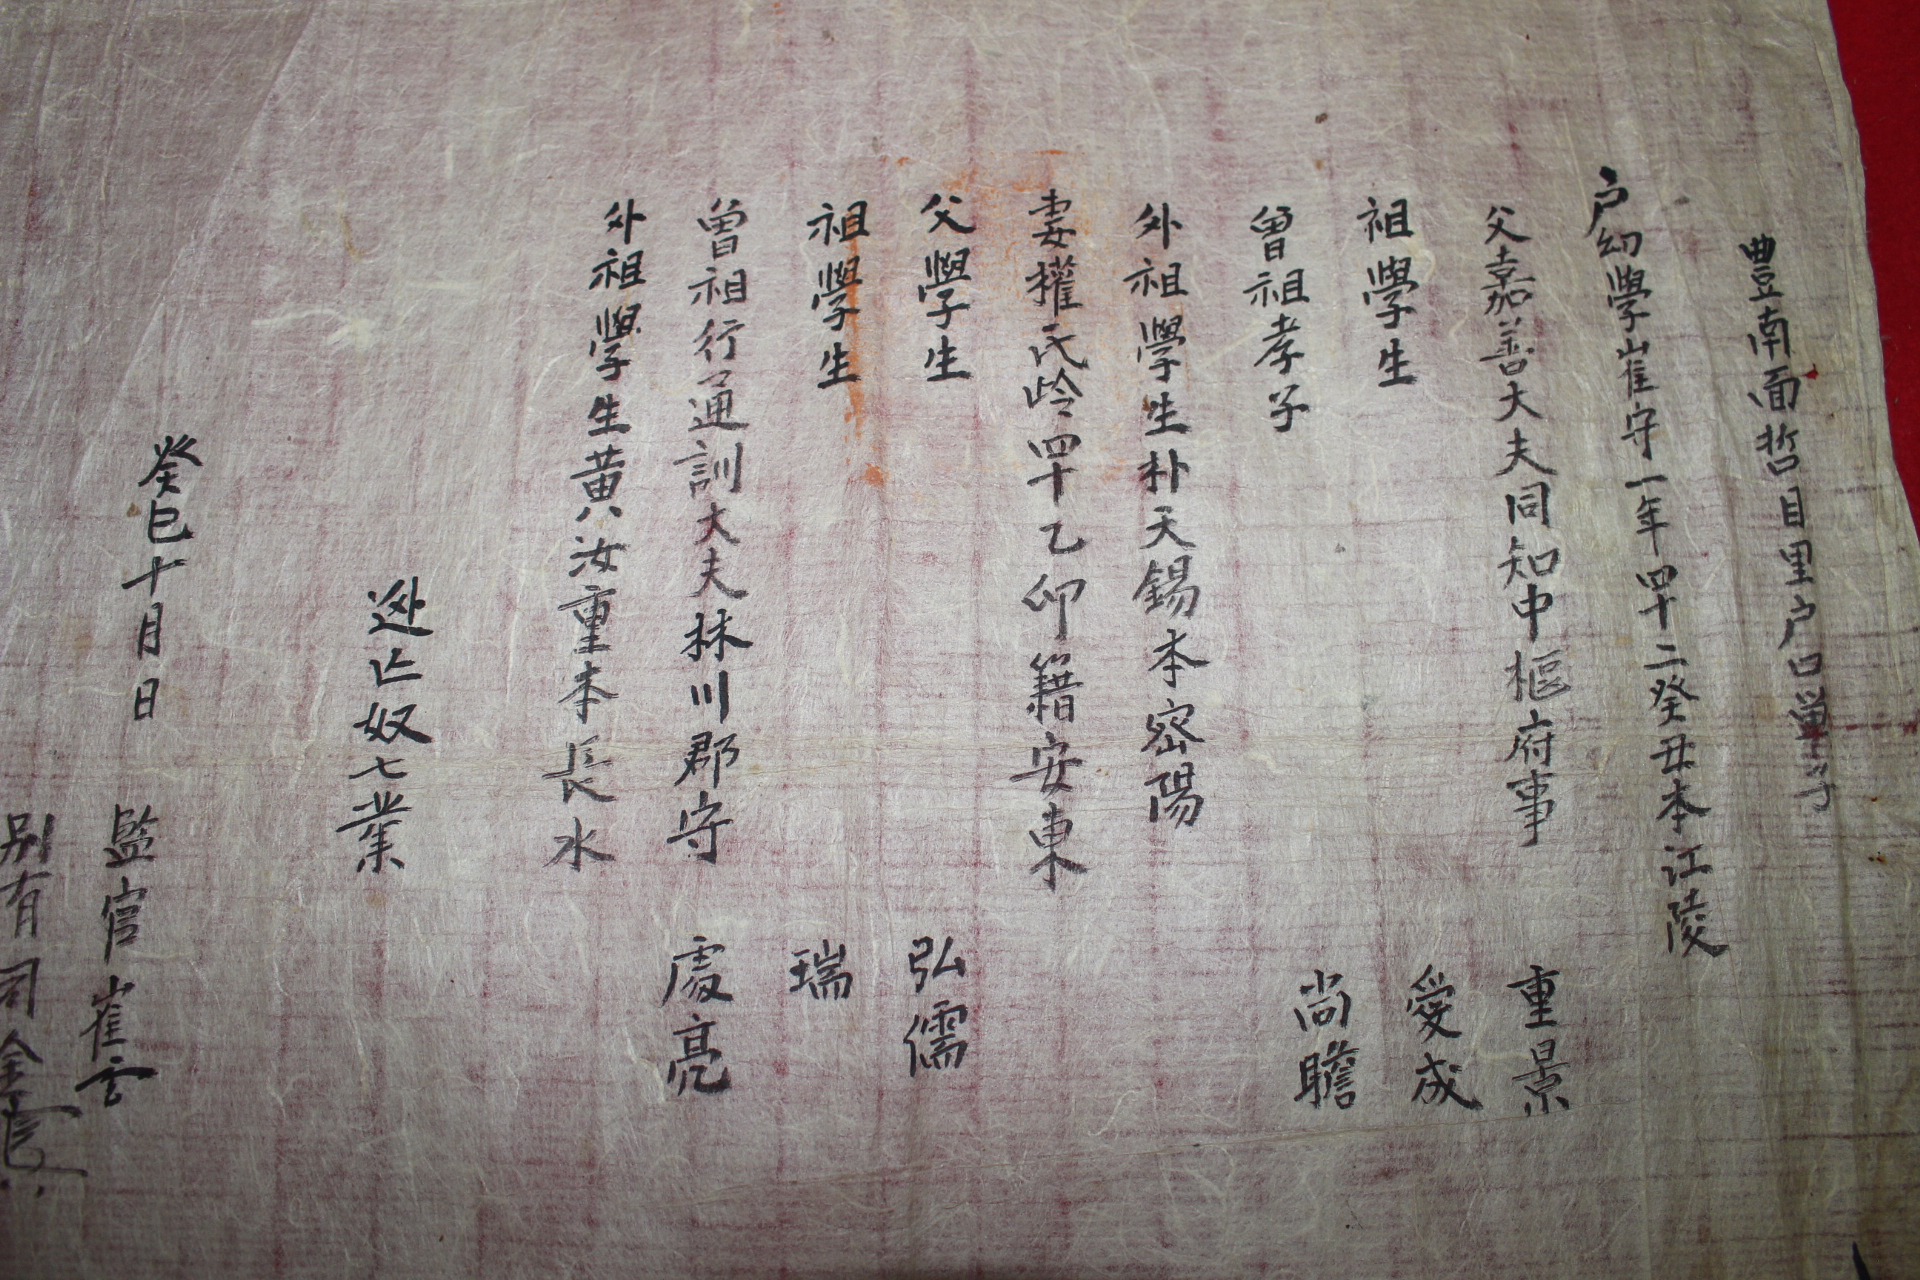 豊南面哲目里户口單子
户幼學崔守一年四十二癸丑本江陵
父嘉善大夫同知中樞府事 重景
祖學生 愛成
曾祖孝子 尚瞻
外祖學生朴天錫本密陽
妻權氏岭四十乙卯籍安東
父學生 弘儒
祖學生 瑞
曾祖行通訓大夫林川郡守 處亮
外祖學生黃汝重本長水
迯亡奴七業
癸巳十月日
監官崔
別有司金